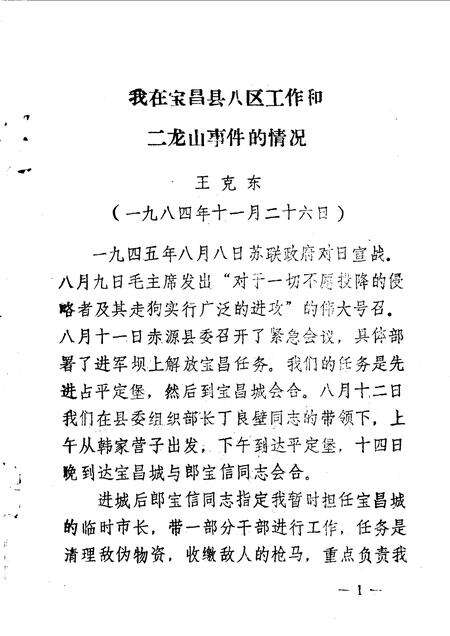 我在宝昌县八区工作和
二龙山事件的情况
王克东
（一九八四年十一月二十六日）
一九四五年八月八日苏联政府对日宣战。
八月九日毛主席发出“对于一切不愿投降的侵
略者及其走狗实行广泛的进攻”的伟大号召。
八月十一日赤源县委召开了紧急会议，具体部
署了进军坝上解放宝昌任务。我们的任务是先
进占平定堡，然后到宝昌城会合。八月十二日
我们在县委组织部长丁良壁同志的带领下，上
午从韩家营子出发，下午到达平定堡，十四日
晚到达宝昌城与郎宝信同志会合。
进城后郎宝信同志指定我暂时担任宝昌城
的临时市长，带一部分干部进行工作，任务是
清理敌伪物资，收缴敌人的枪马，重点负责我
—1—